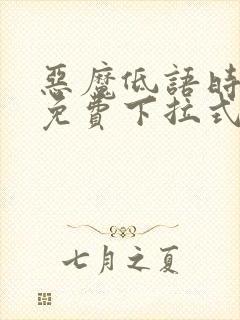 惡魔低語時
免費下拉式
七月之夏